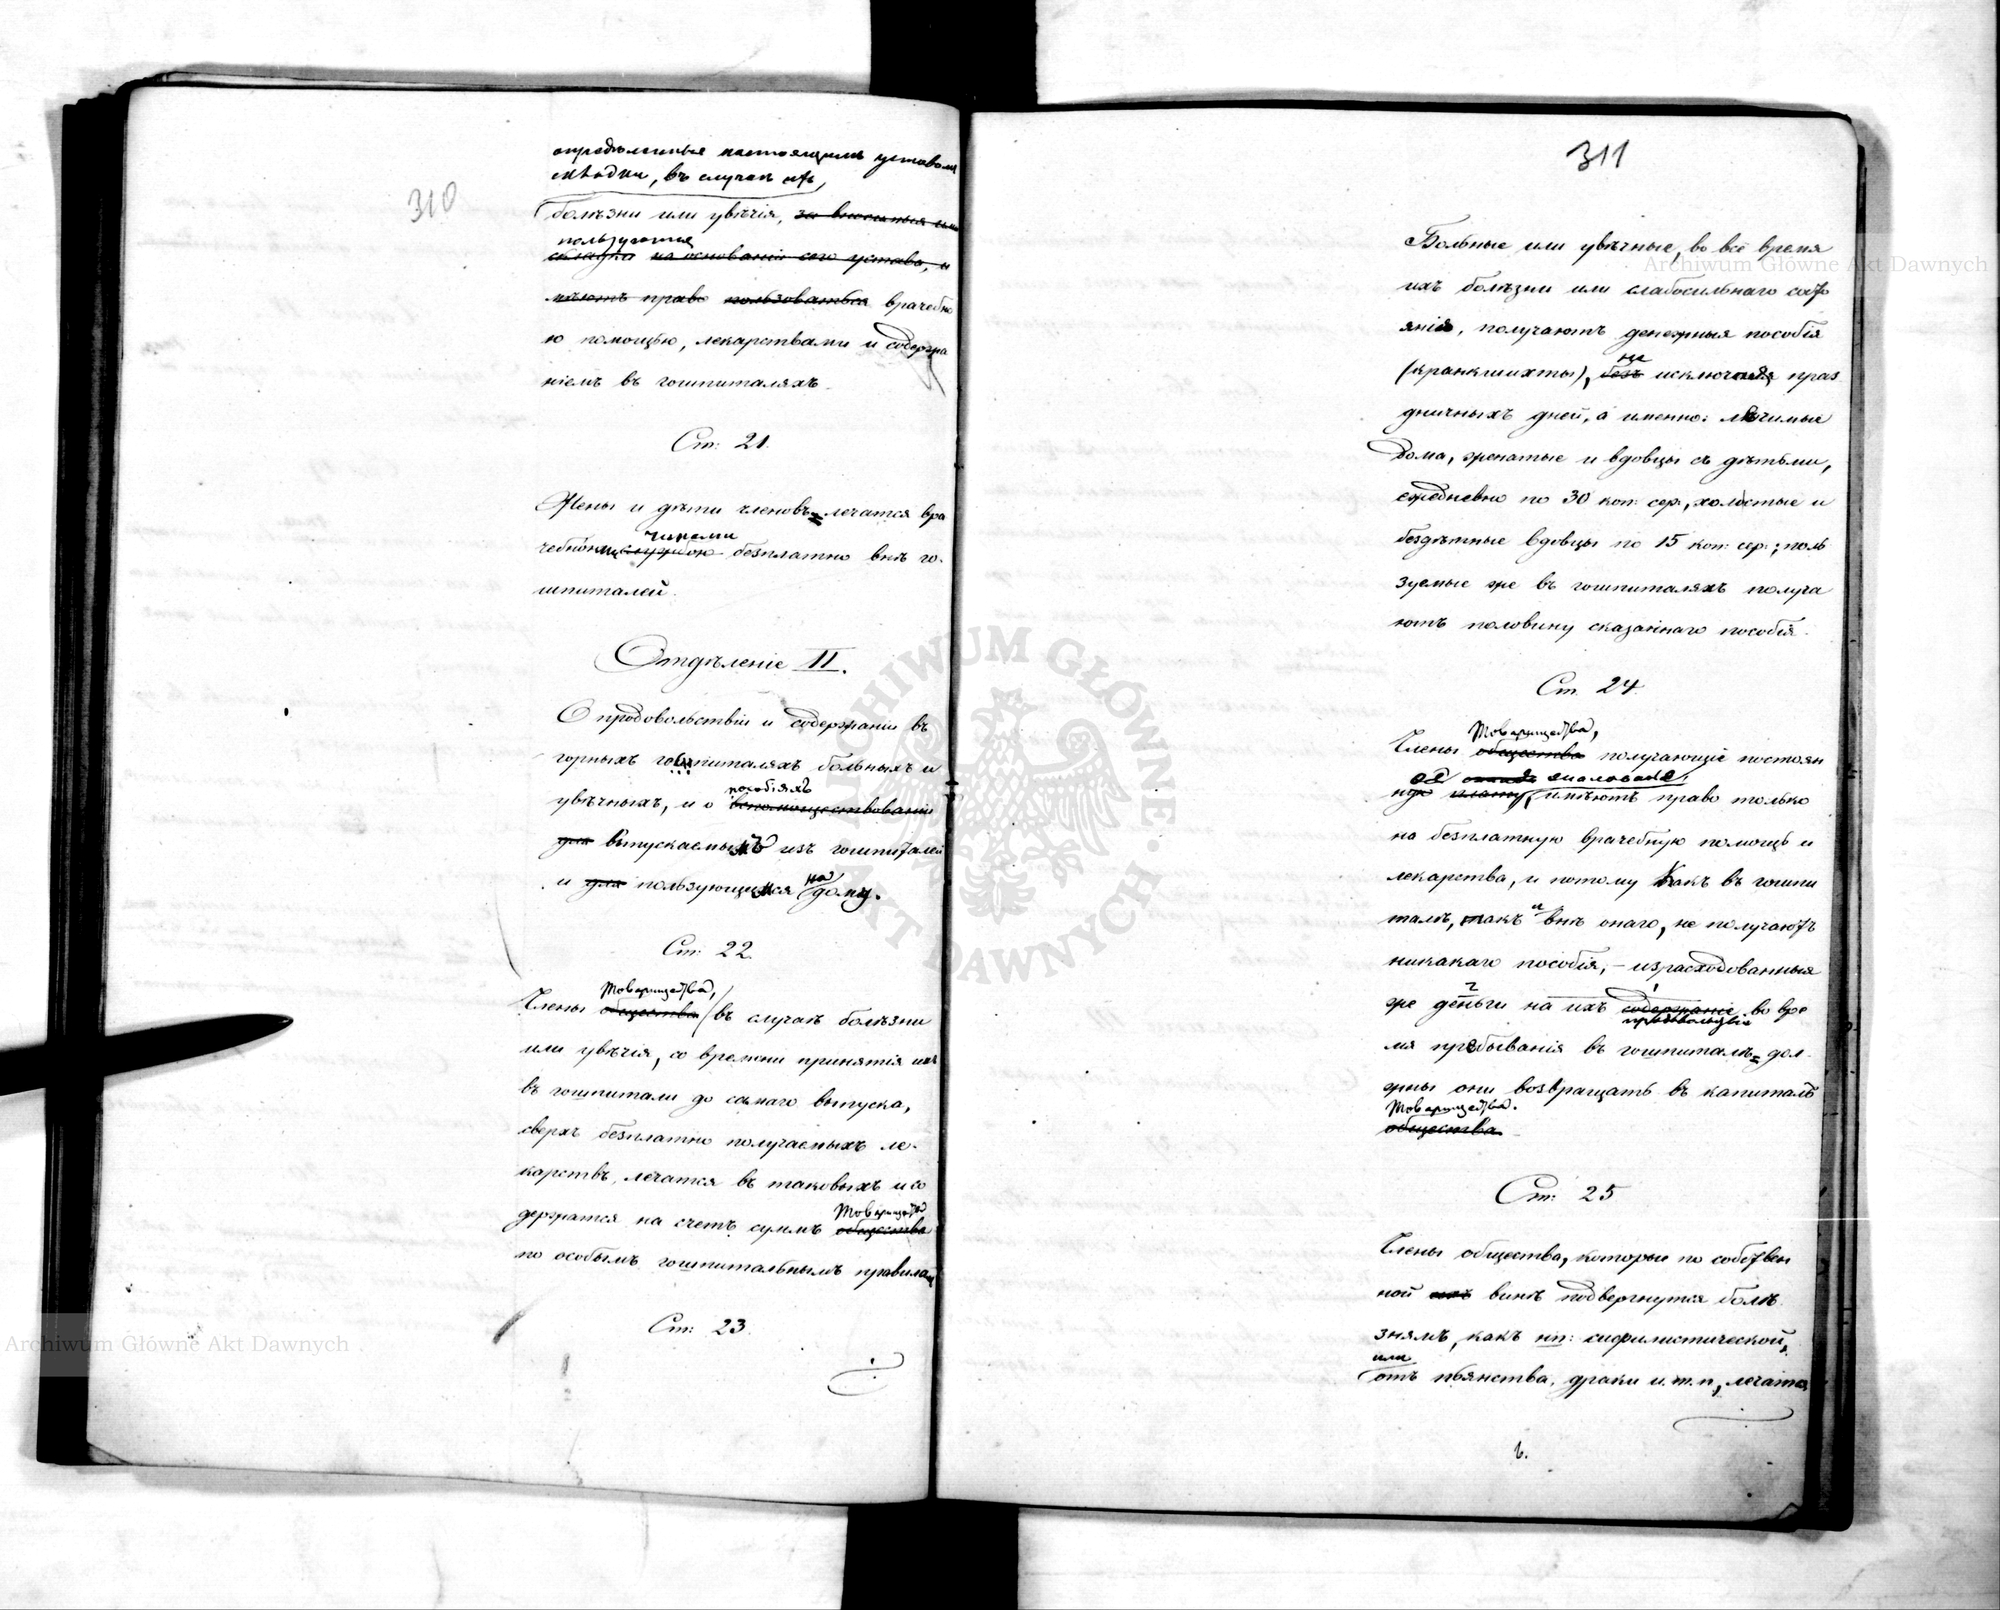 310
опредѣленные настоящимъ уставомъ
складки, въ случаѣ
болѣзни или увѣчія, за вносимыя ими
пользуются
складки на основаніи сего устава, и
мѣютъ право пользоваться врачебно
ю помощью, лекарствами и содержа
ніемъ въ гошпиталяхъ.
Ст: 21.
Жены и дѣти членовъ лечатся вра
чинами
чебною службою безплатно внѣ го-
шпиталей.
Отдѣленіе II.
О продовольствіи и содержаніи въ
горныхъ гошпиталяхъ больныхъ и
пособіяхъ
увѣчныхъ, и о вспомоществованіи
для выпускаемыхъ изъ гошпиталей
на
и для пользующихся дому.
Ст: 22.
Товарищества,
Члены общества въ случаѣ болѣзни
или увѣчія, со времени принятія ихъ
въ гошпитали до самаго выпуска,
сверхъ безплатно получаемыхъ ле-
карствъ, лечатся въ таковыхъ и со
Товарищества
держатся на счетъ суммъ общества
по особымъ гошпитальнымъ правиламъ
Ст: 23.
311
Больные или увѣчные, во всё время
ихъ болѣзни или слабосильнаго состо
янія, получаютъ денежныя пособія
не
(кранкшихты), безъ исключая праз
дничныхъ дней, а именно: лѣчимые
дома, женатые и вдовцы съ дѣтьми,
ежедневно по 30 коп: сер:, холостые и
бездѣтные вдовцы по 15 коп: сер:; поль
зуемые же въ гошпиталяхъ получа
ютъ половину сказаннаго пособія.
Ст. 24
Товарищества,
Члены общества получающіе постоян
ое жалованье,
ную плату, имѣютъ право только
на безплатную врачебную помощь и
лекарства, и потому какъ въ гошпи
и
талѣ, такъ внѣ онаго, не получаютъ
никакаго пособія, — израсходованныя
же деньги на ихъ содержаніе во вре
продовольствіе
мя пребыванія въ гошпиталѣ дол-
жны они возвращать въ капиталъ
Товарищества.
общества.
Ст: 25
Члены общества, которые по собствен
ной ихъ винѣ подвергнутся болѣ
знямъ, какъ нп: сифилистической,
или
отъ пьянства, драки и.т.п., лечатся
Archiwum Główne Akt Dawnych
Archiwum Główne Akt Dawnych
ARCHIWUM GŁÓWNE AKT DAWNYCH